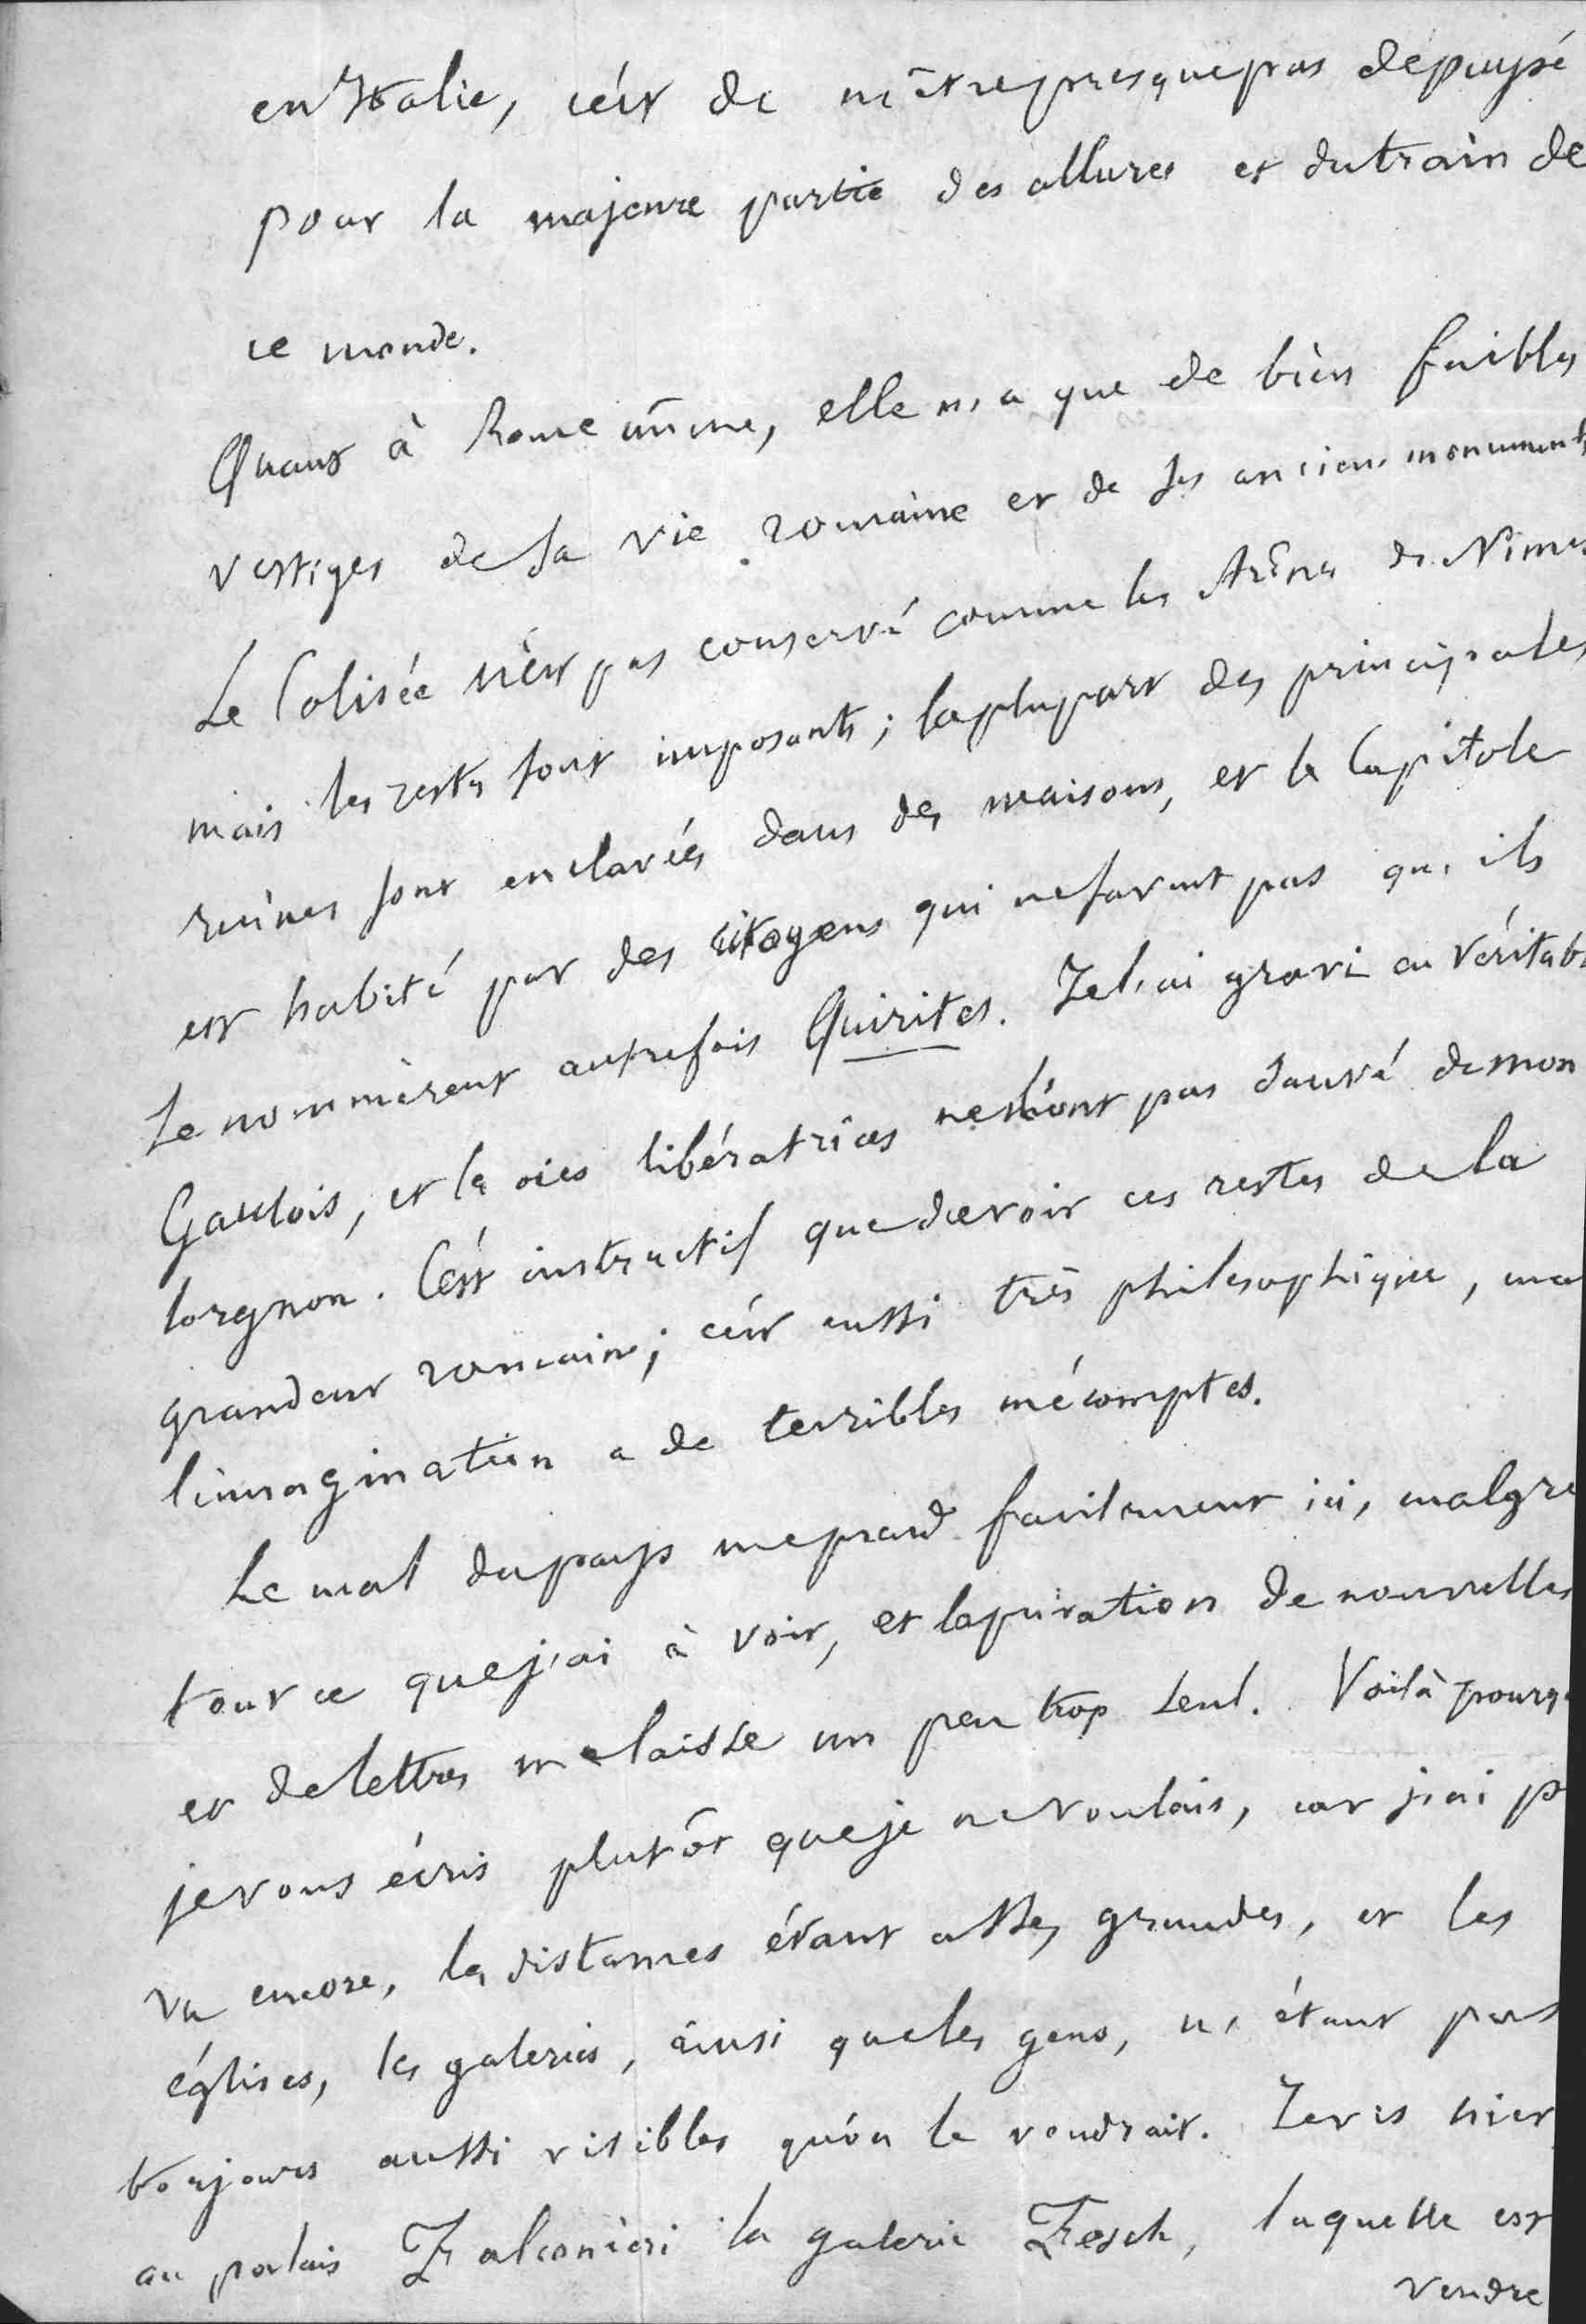 en Italie, c'est de n'être presque pas dépaysé
pour la majeure partie des allures et du train de
ce monde.
Quant à Rome même, elle n'a que de bien faibles
vestiges de sa vie romaine et de ses anciens monuments
Le Colisée n'est pas conservé comme les Arènes de Nimes
mais les restes sont imposants ; la plupart des principales
ruines sont enclavées dans des maisons, et le Capitole
est habité par des citoyens qui ne savent pas qu'ils
se nommèrent autrefois Quirites. Je l'ai gravi en véritab
Gaulois, et les oies libératrices ne l'ont pas sauvé de mon
lorgnon. C'est instructif que de voir ces restes de la
grandeur romaine ; c'est aussi très philosophique, ma
l'imagination a de terribles mécomptes.
Le mal du pays me prend facilement ici, malgré
tout ce que j'ai à voir, et la privation de nouvelles
et de lettres me laisse un peu trop seul. Voilà pourq
je vous écris plutôt que je ne voulais, car j'ai p
vu encore, les distances étant assez grandes, et les
églises, les galeries, ainsi que les gens, n'étant pas
toujours aussi visibles qu'on le voudrait. Je vis hier
au palais Falconieri la galerie Fesch, laquelle est
vendre